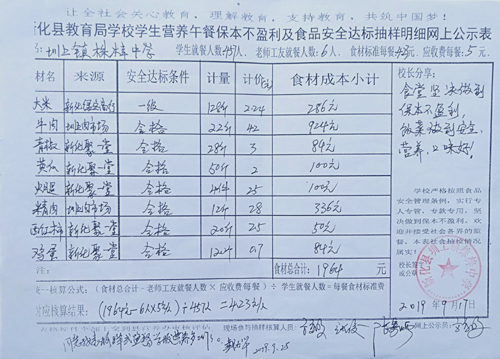 让全社会关心教育，理解教育，支持教育，共筑中国梦！
化县教育局学校学生营养午餐保本不盈利及食品安全达标抽样明细网上公示表
圳上镇 中学 学生就餐人数457人、老师工友就餐人数：6人、食材标准每餐4.23元、应收费每餐：5元
材名 来源 安全达标条件 计量 计价 食材成本小计 校长分享：
大米 一级 128斤 2.24 286元
牛肉 圳上肉市场 合格 22斤 42 924元
新化聚一堂 合格 28斤 3 84元
黄瓜 新化聚一堂 合格 50斤 2 100元
火腿 新化聚一堂 合格 4斤 25 100元
精肉 圳上肉市场 合格 12斤 28 336元
西红柿 新化聚一堂 合格 20斤 2.5 50元
鸡蛋 新化聚一堂 合格 120 0.7 84元
食堂坚决做到
保本不盈利，
饭菜达到安全、
营养、口味好！
学校严格按照食品
安全管理条例，实行专
人专管，专款专用，坚决
做到保本不盈利，欢
迎并接受社会各界的监
督，本表社会抽核情况
属实！
注： 食材总合计：1964 元
一核算公式：（食材总合计－老师工友就餐人数×应收费每餐）÷学生就餐人数=每餐食材标准费
应核算结果：（1964元-6人×5元）÷457人=4.23元/人
2019年9月17日
现场参与抽样核算人员：
网上公示员：
2019.9.25